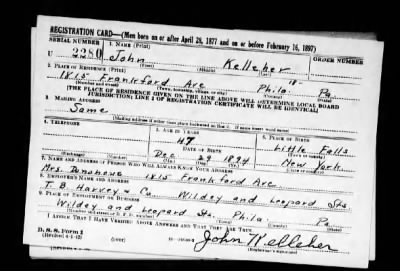 REGISTRATION CARD—(Men born on or after April 28, 1877 and on or before February 16, 1897)
SERIAL NUMBER 1. NAME (Print)
U 2280 John Kelleher
(First) (Middle) (Last)
2. PLACE OF RESIDENCE (Print)
1815 Frankford Ave Phila. Pa
(Number and street) (Town, township, village, or city) (County) (State)
[THE PLACE OF RESIDENCE GIVEN ON THE LINE ABOVE WILL DETERMINE LOCAL BOARD
JURISDICTION; LINE 2 OF REGISTRATION CERTIFICATE WILL BE IDENTICAL]
3. MAILING ADDRESS
Same
[Mailing address if other than place indicated on line 2. If same insert word same]
4. TELEPHONE
5. AGE IN YEARS
47
DATE OF BIRTH
Dec 29 1894
(Mo.) (Day) (Yr.)
6. PLACE OF BIRTH
Little Falls
(Town or county)
New York
(State or country)
7. NAME AND ADDRESS OF PERSON WHO WILL ALWAYS KNOW YOUR ADDRESS
Mrs. Donohowe 1815 Frankford Ave
8. EMPLOYER'S NAME AND ADDRESS
T. B. Harvey & Co Wildey and Leopard Sts
9. PLACE OF EMPLOYMENT OR BUSINESS
Wildey and Leopard Sts. Phila. Pa
(Number and street or R. F. D. number) (Town) (County) (State)
I AFFIRM THAT I HAVE VERIFIED ABOVE ANSWERS AND THAT THEY ARE TRUE.
D. S. S. Form 1
(Revised 4-1-42) (over)
John Kelleher